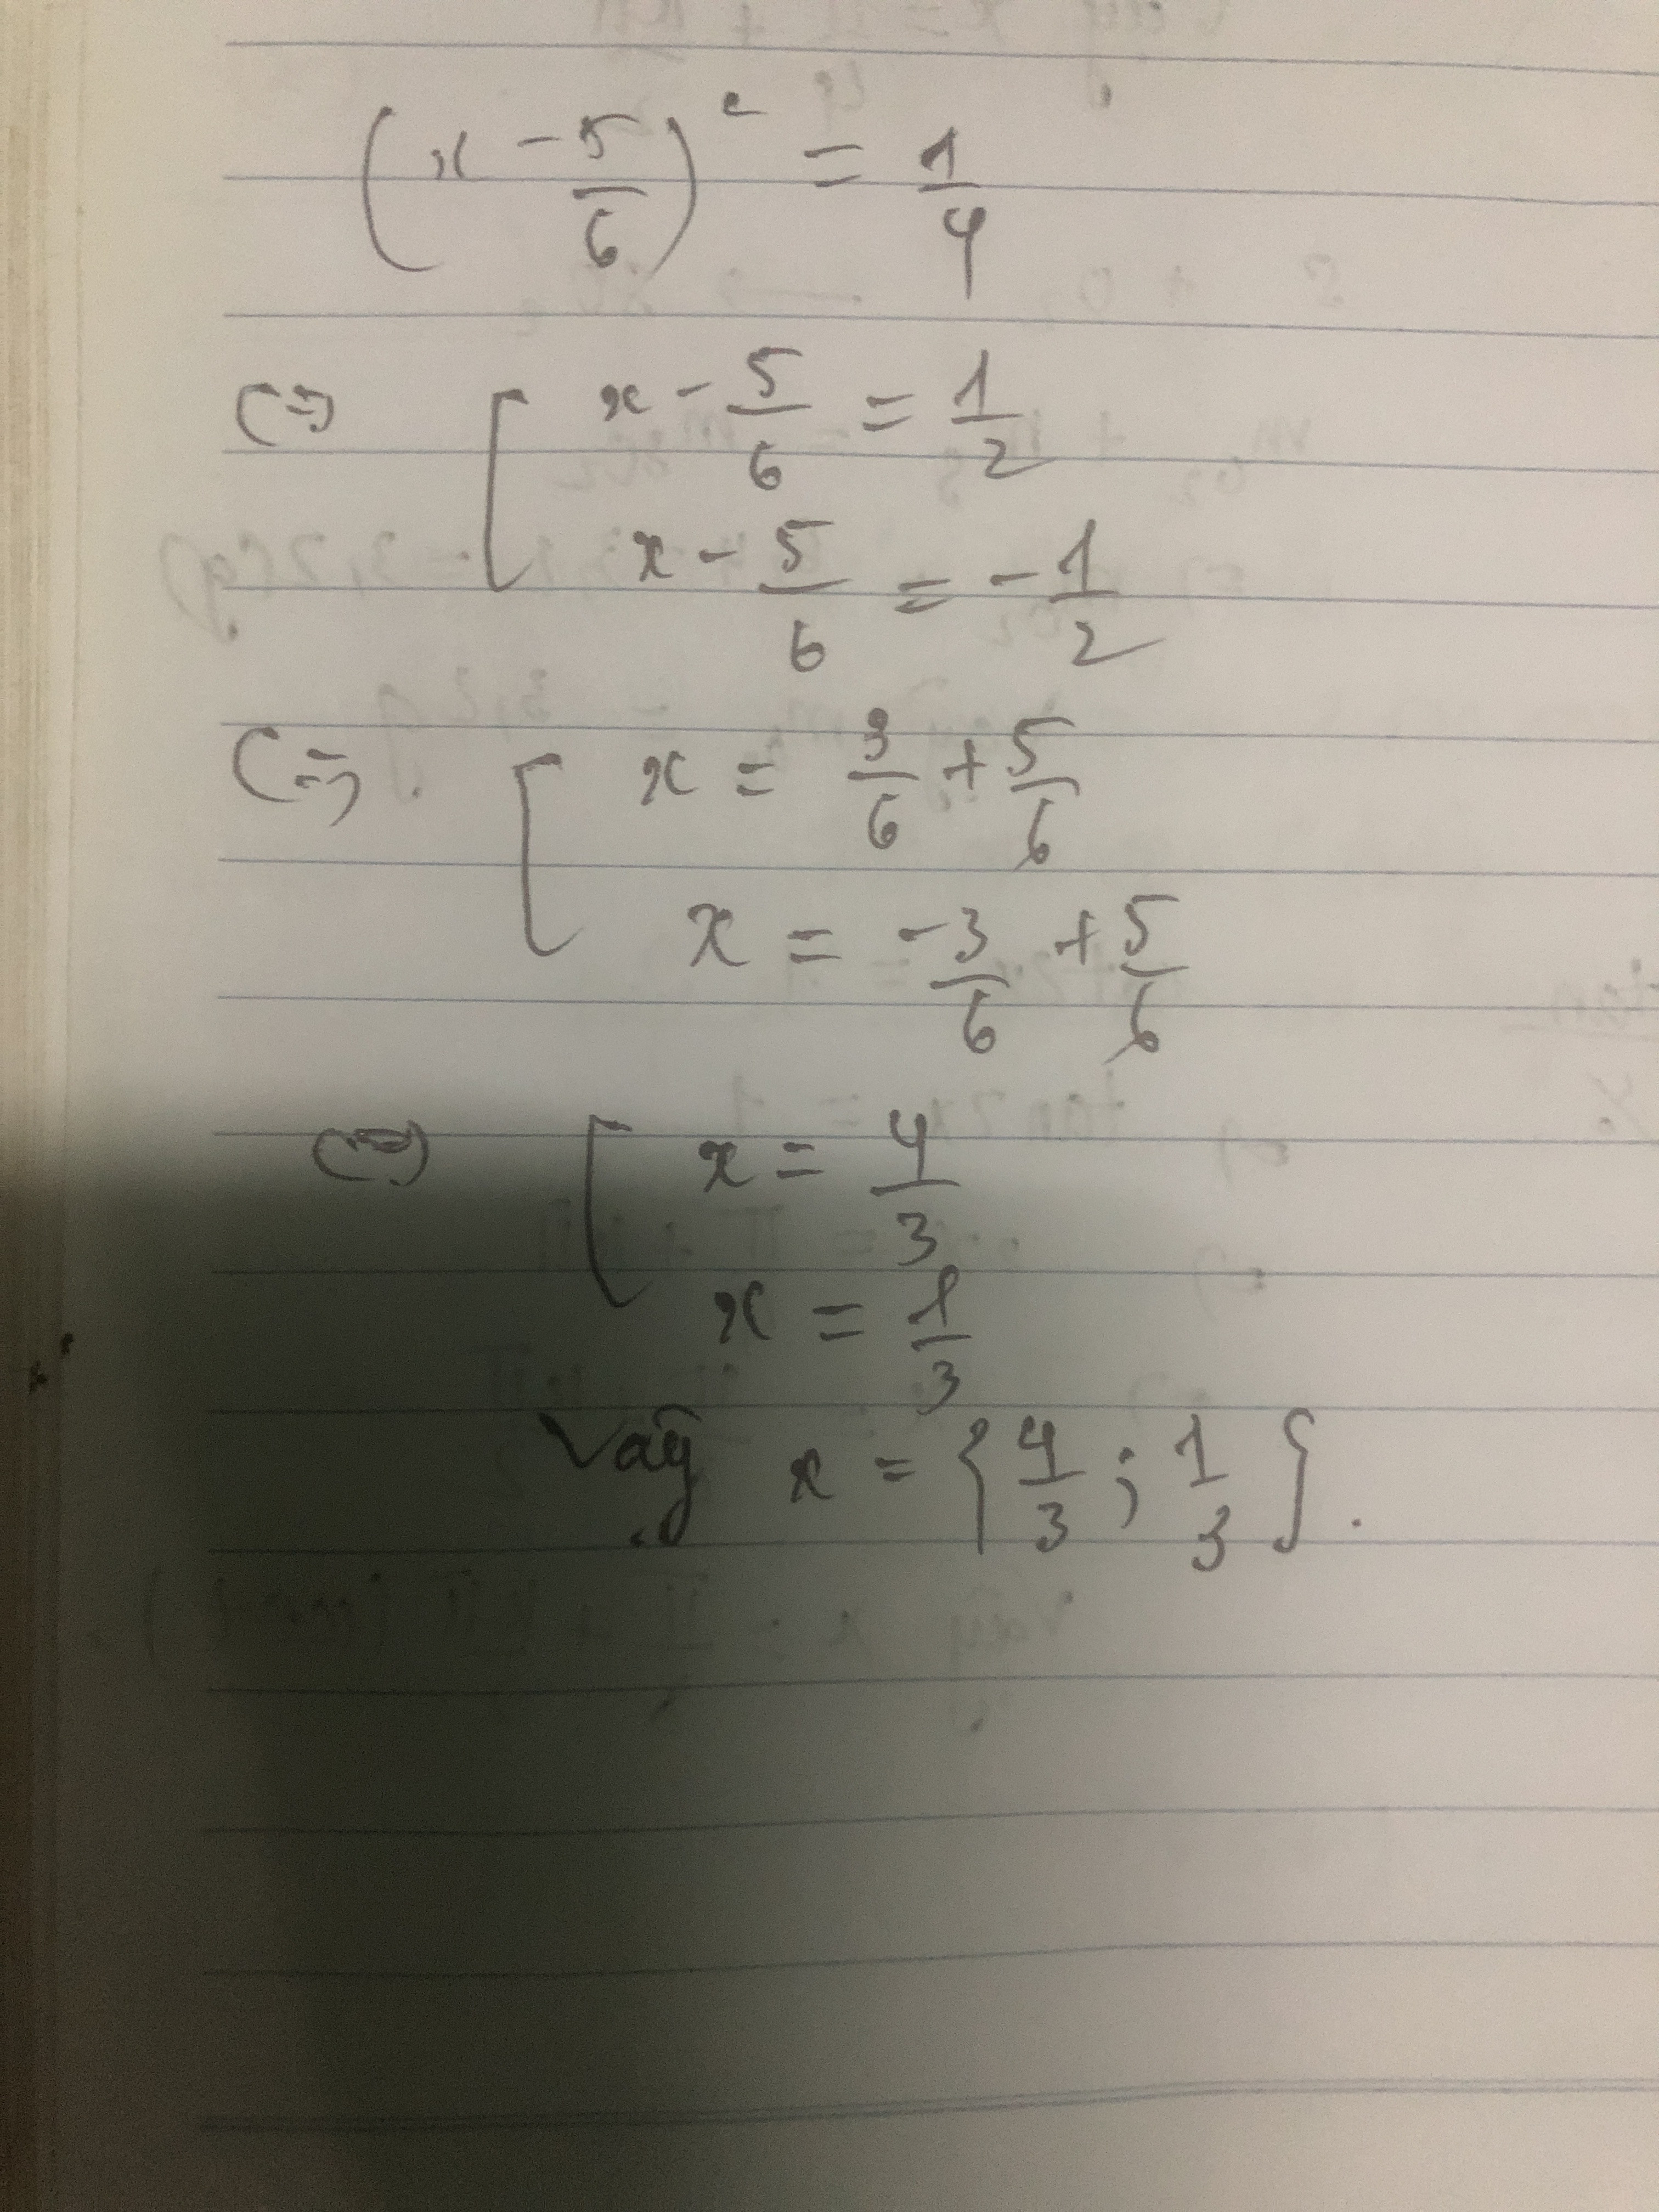 (x - 5/6)² = 1/4
<=> [ x - 5/6 = 1/2
x - 5/6 = -1/2
<=> [ x = 3/6 + 5/6
x = -3/6 + 5/6
<=> [ x = 4/3
x = 1/3
Vậy x = {4/3 ; 1/3}.